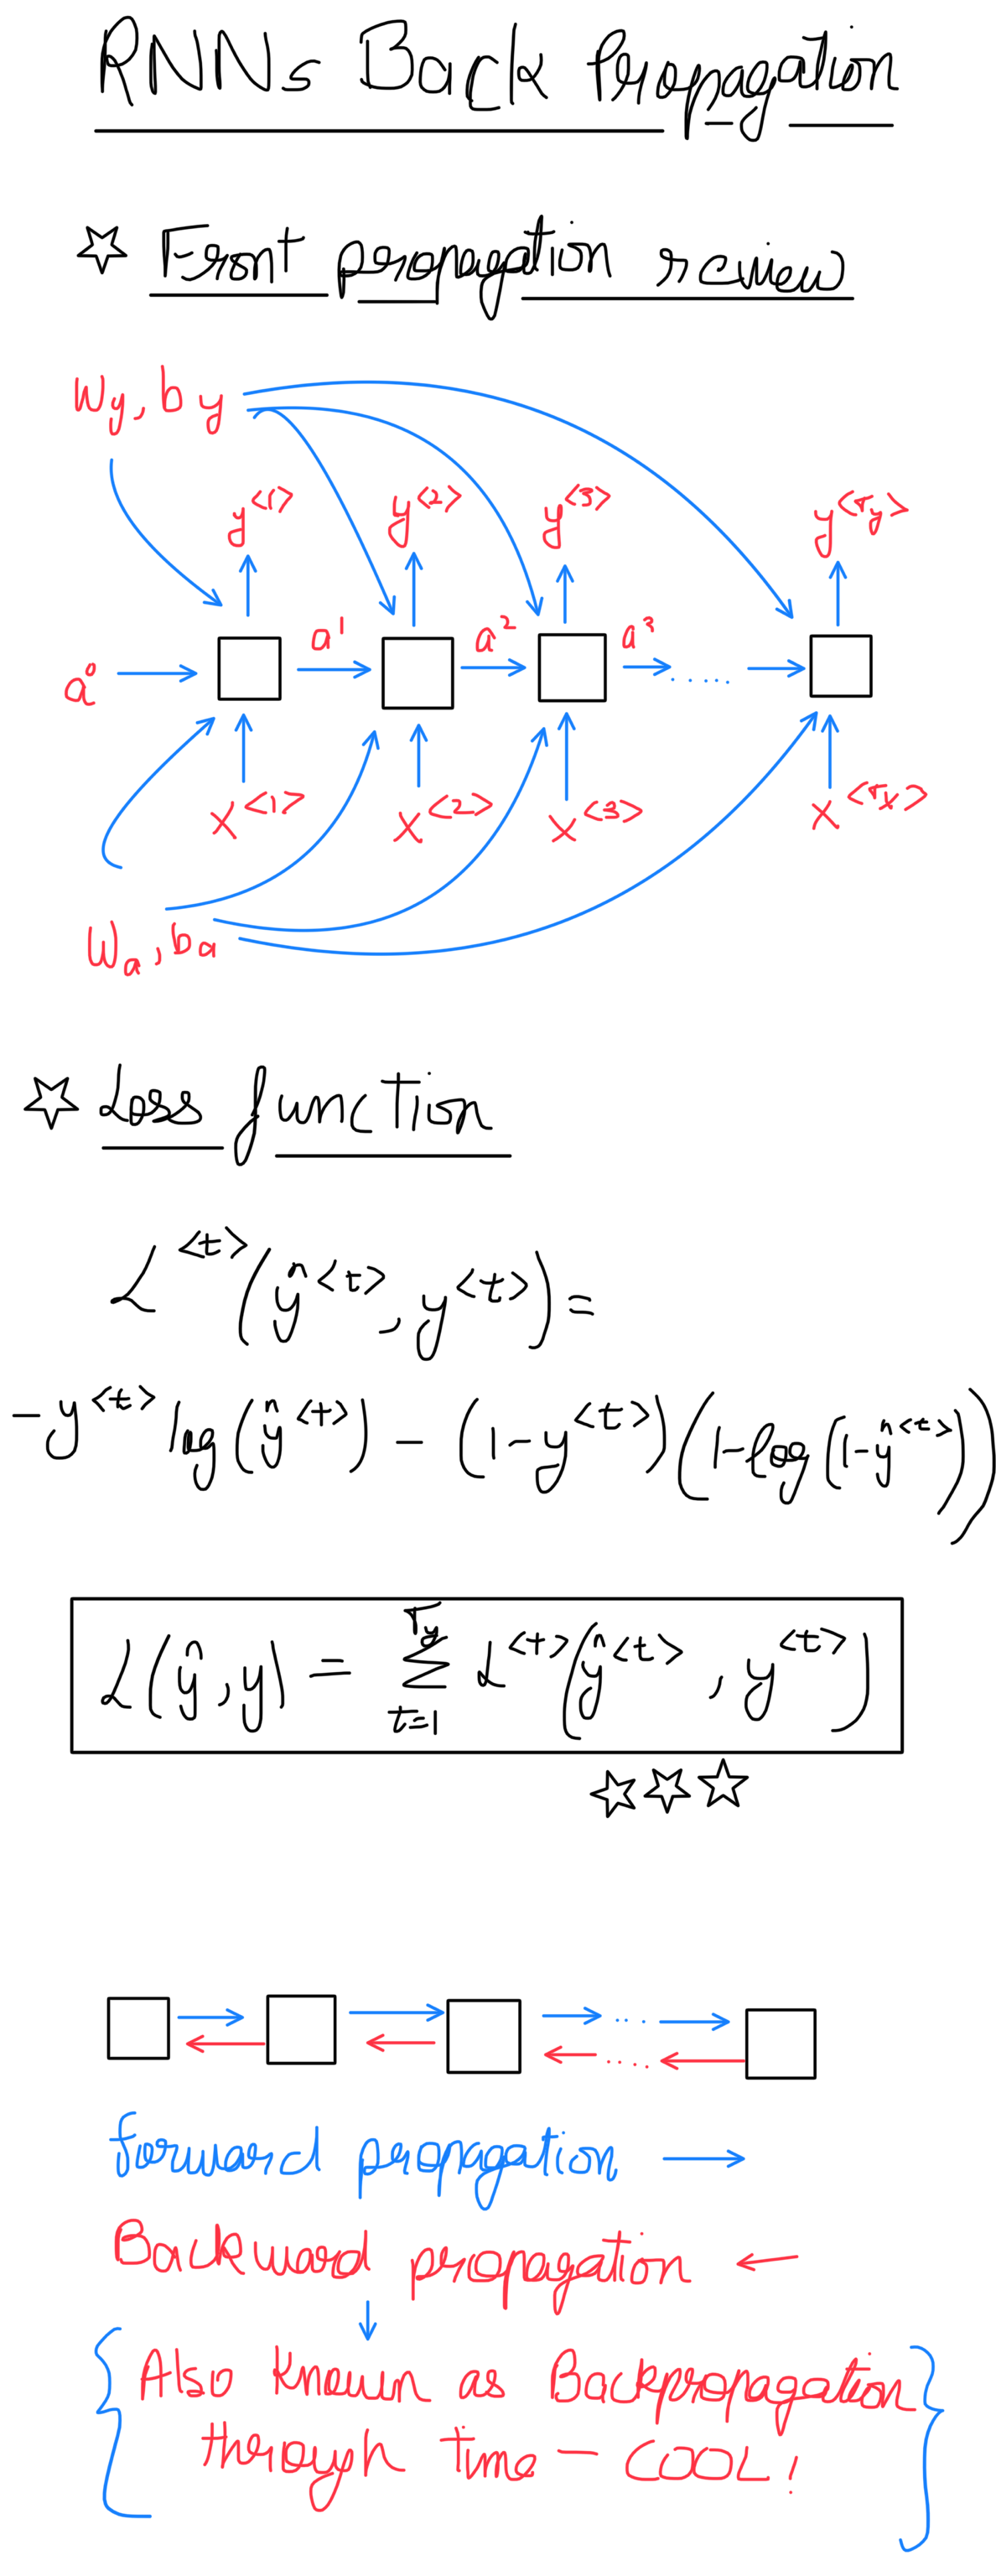 RNNs Back Propagation
☆ Front propagation review
Wy, by
y<1> y<2> y<3> y<Ty>
a⁰ a¹ a² a³ .....
x<1> x<2> x<3> x<Tx>
Wa, ba
☆ Loss function
L<t>(ŷ<t>, y<t>) =
-y<t> log(ŷ<t>) - (1-y<t>)(1-log(1-ŷ<t>))
L(ŷ,y) = Σ_{t=1}^{Ty} L<t>(ŷ<t>, y<t>)
☆☆☆
forward propagation →
Backward propagation ←
{ Also known as Backpropagation
through time - COOL! }